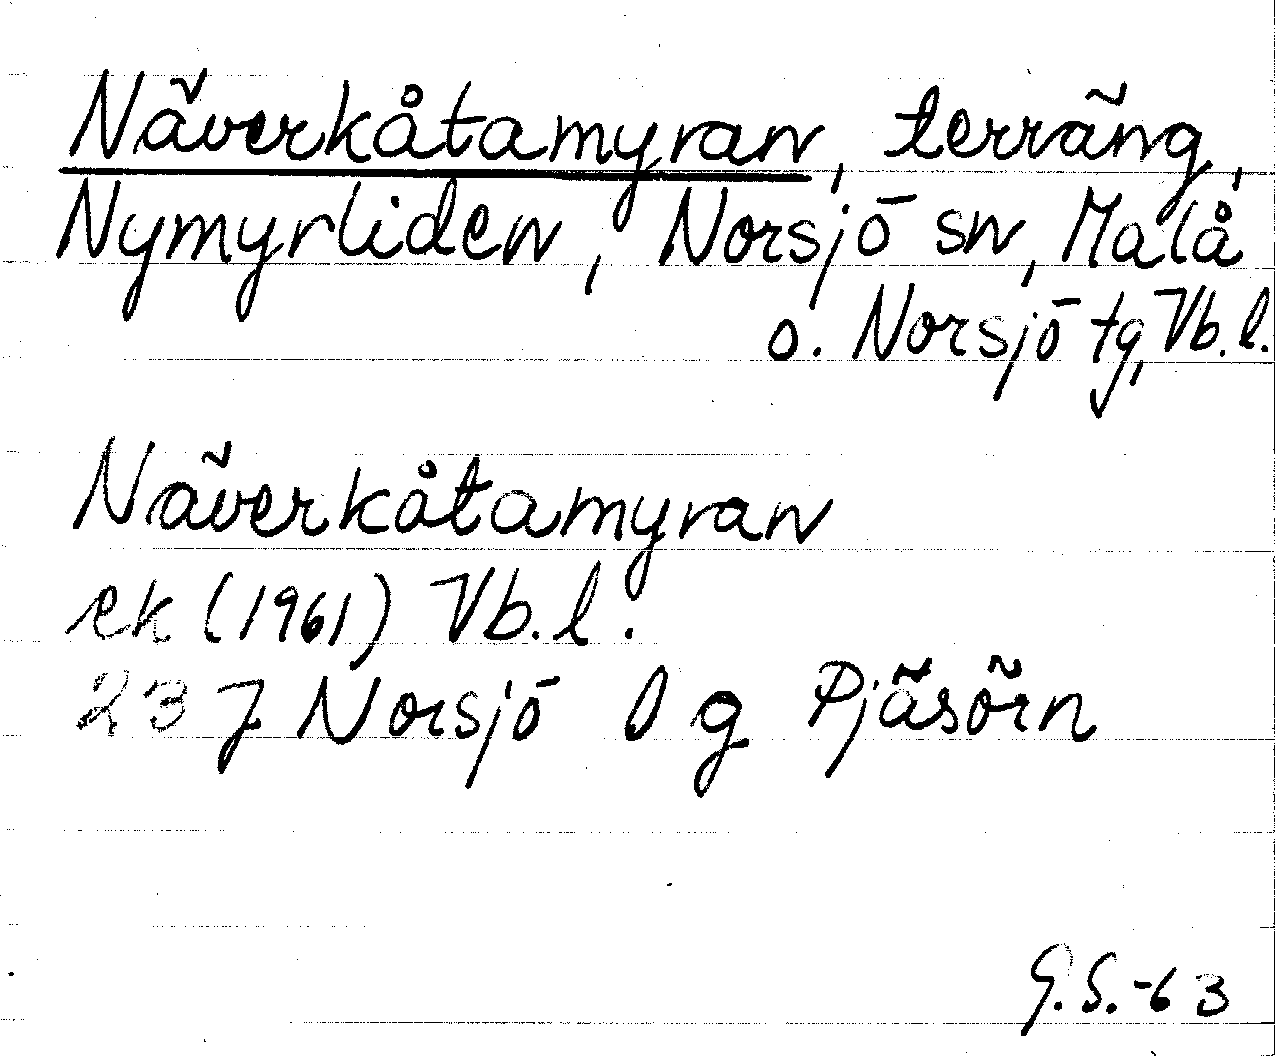 Näverkåtamyran, terräng,
Nymyrliden, Norsjö sn, Malå
o. Norsjö tg, Vb.l.
Näverkåtamyran
ek (1961) Vb.l.
23 J Norsjö l g Pjäsörn
G.S.-63